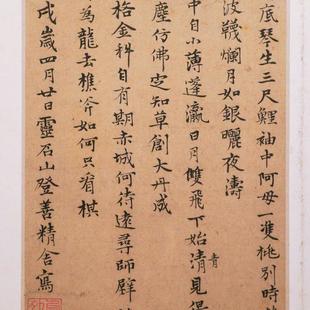 底琴生三尺鯉袖中阿母一雙桃別時
波襪爛月如銀曬夜濤
中自小薄蓬瀛日月雙飛下始清見
青
塵仿佛定知草創大丹成
格金科自有期赤城何待遠尋師壁
為龍去樵斧如何只看棋
戌歲四月廿日靈石山登善精舍寫